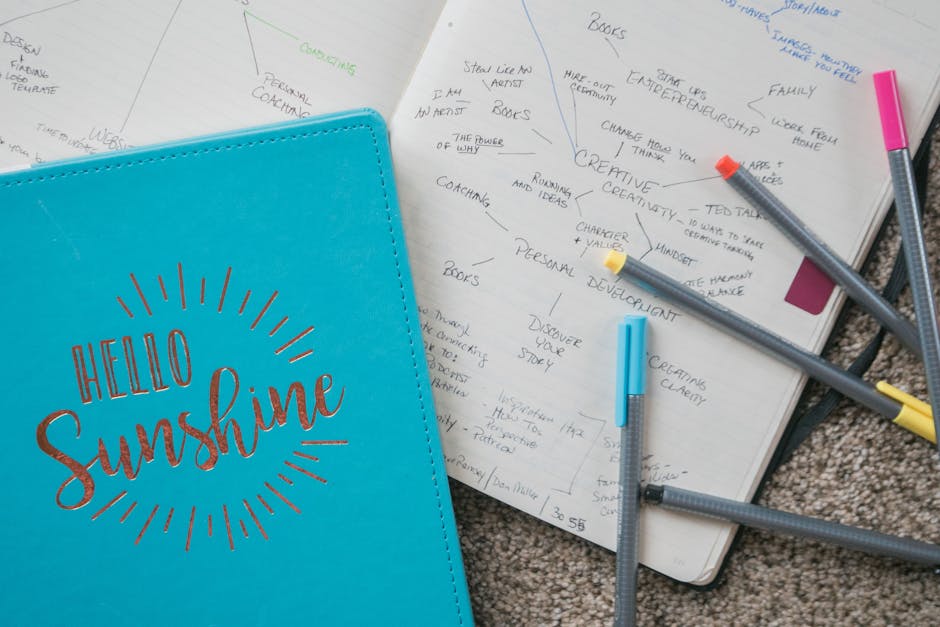 DESIGN
+
FINDING
LOGO
TEMPLATE
CONDUCTING
PERSONAL
COACHING
WEBSITE
HELLO
Sunshine
BOOKS
STORY/ABOUT
IMAGES - HOW THEY
MAKE YOU FEEL
STEAL LIKE AN
ARTIST
I AM
AN ARTIST
BOOKS
THE POWER
OF WHY
HIRE-OUT
CREATIVITY
START UPS
ENTREPRENEURSHIP
FAMILY
WORK FROM
HOME
CHANGE HOW YOU
THINK
CREATIVE
CREATIVITY
APPS +
RUNNING
AND IDEAS
TED TALK
10 WAYS TO SPARK
CREATIVE THINKING
CHARACTER
+ VALUES
MINDSET
HARMONY
BALANCE
COACHING
BOOKS
PERSONAL
DEVELOPMENT
DISCOVER
YOUR
STORY
CREATING
CLARITY
Through
Connecting
TO:
Inspiration
- HOW TO-
Perspective
- Patreon
/Don Miller
/ 30